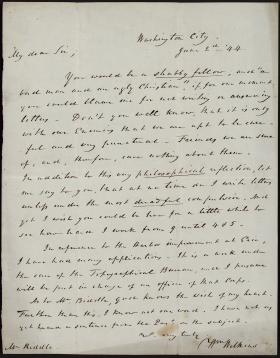 Washington City.
June 2d '44
My dear Sir;
You would be a shabby fellow, and "a
bad man and an ugly Christian", if for one moment
you could blame me for not writing or answering
letters. Don't you well know, that it is only
with our Enemies that we are apt to be careful
and very punctual. Friends we are sure
of, and, therefore, care nothing about them.
In addition to this very philosophical reflection, let
me say to you, that at no time do I write letters
unless under the most dreadful compulsion. And
yet I wish you could be here for a little while to
see how hard I work from 9 until 4 & 5.
In reference to the Harbor improvement at Erie,
I have had many applications. This is a work under
the care of the Topographical Bureau, and I presume
will be put in charge of an officer of that Corps.
As to Mr Biddle, you know the wish of my heart.
Further than this, I know not one word. I have not as
yet heard a sentence from the on the subject.
very truly
Wm Wilkins
Mr Riddle